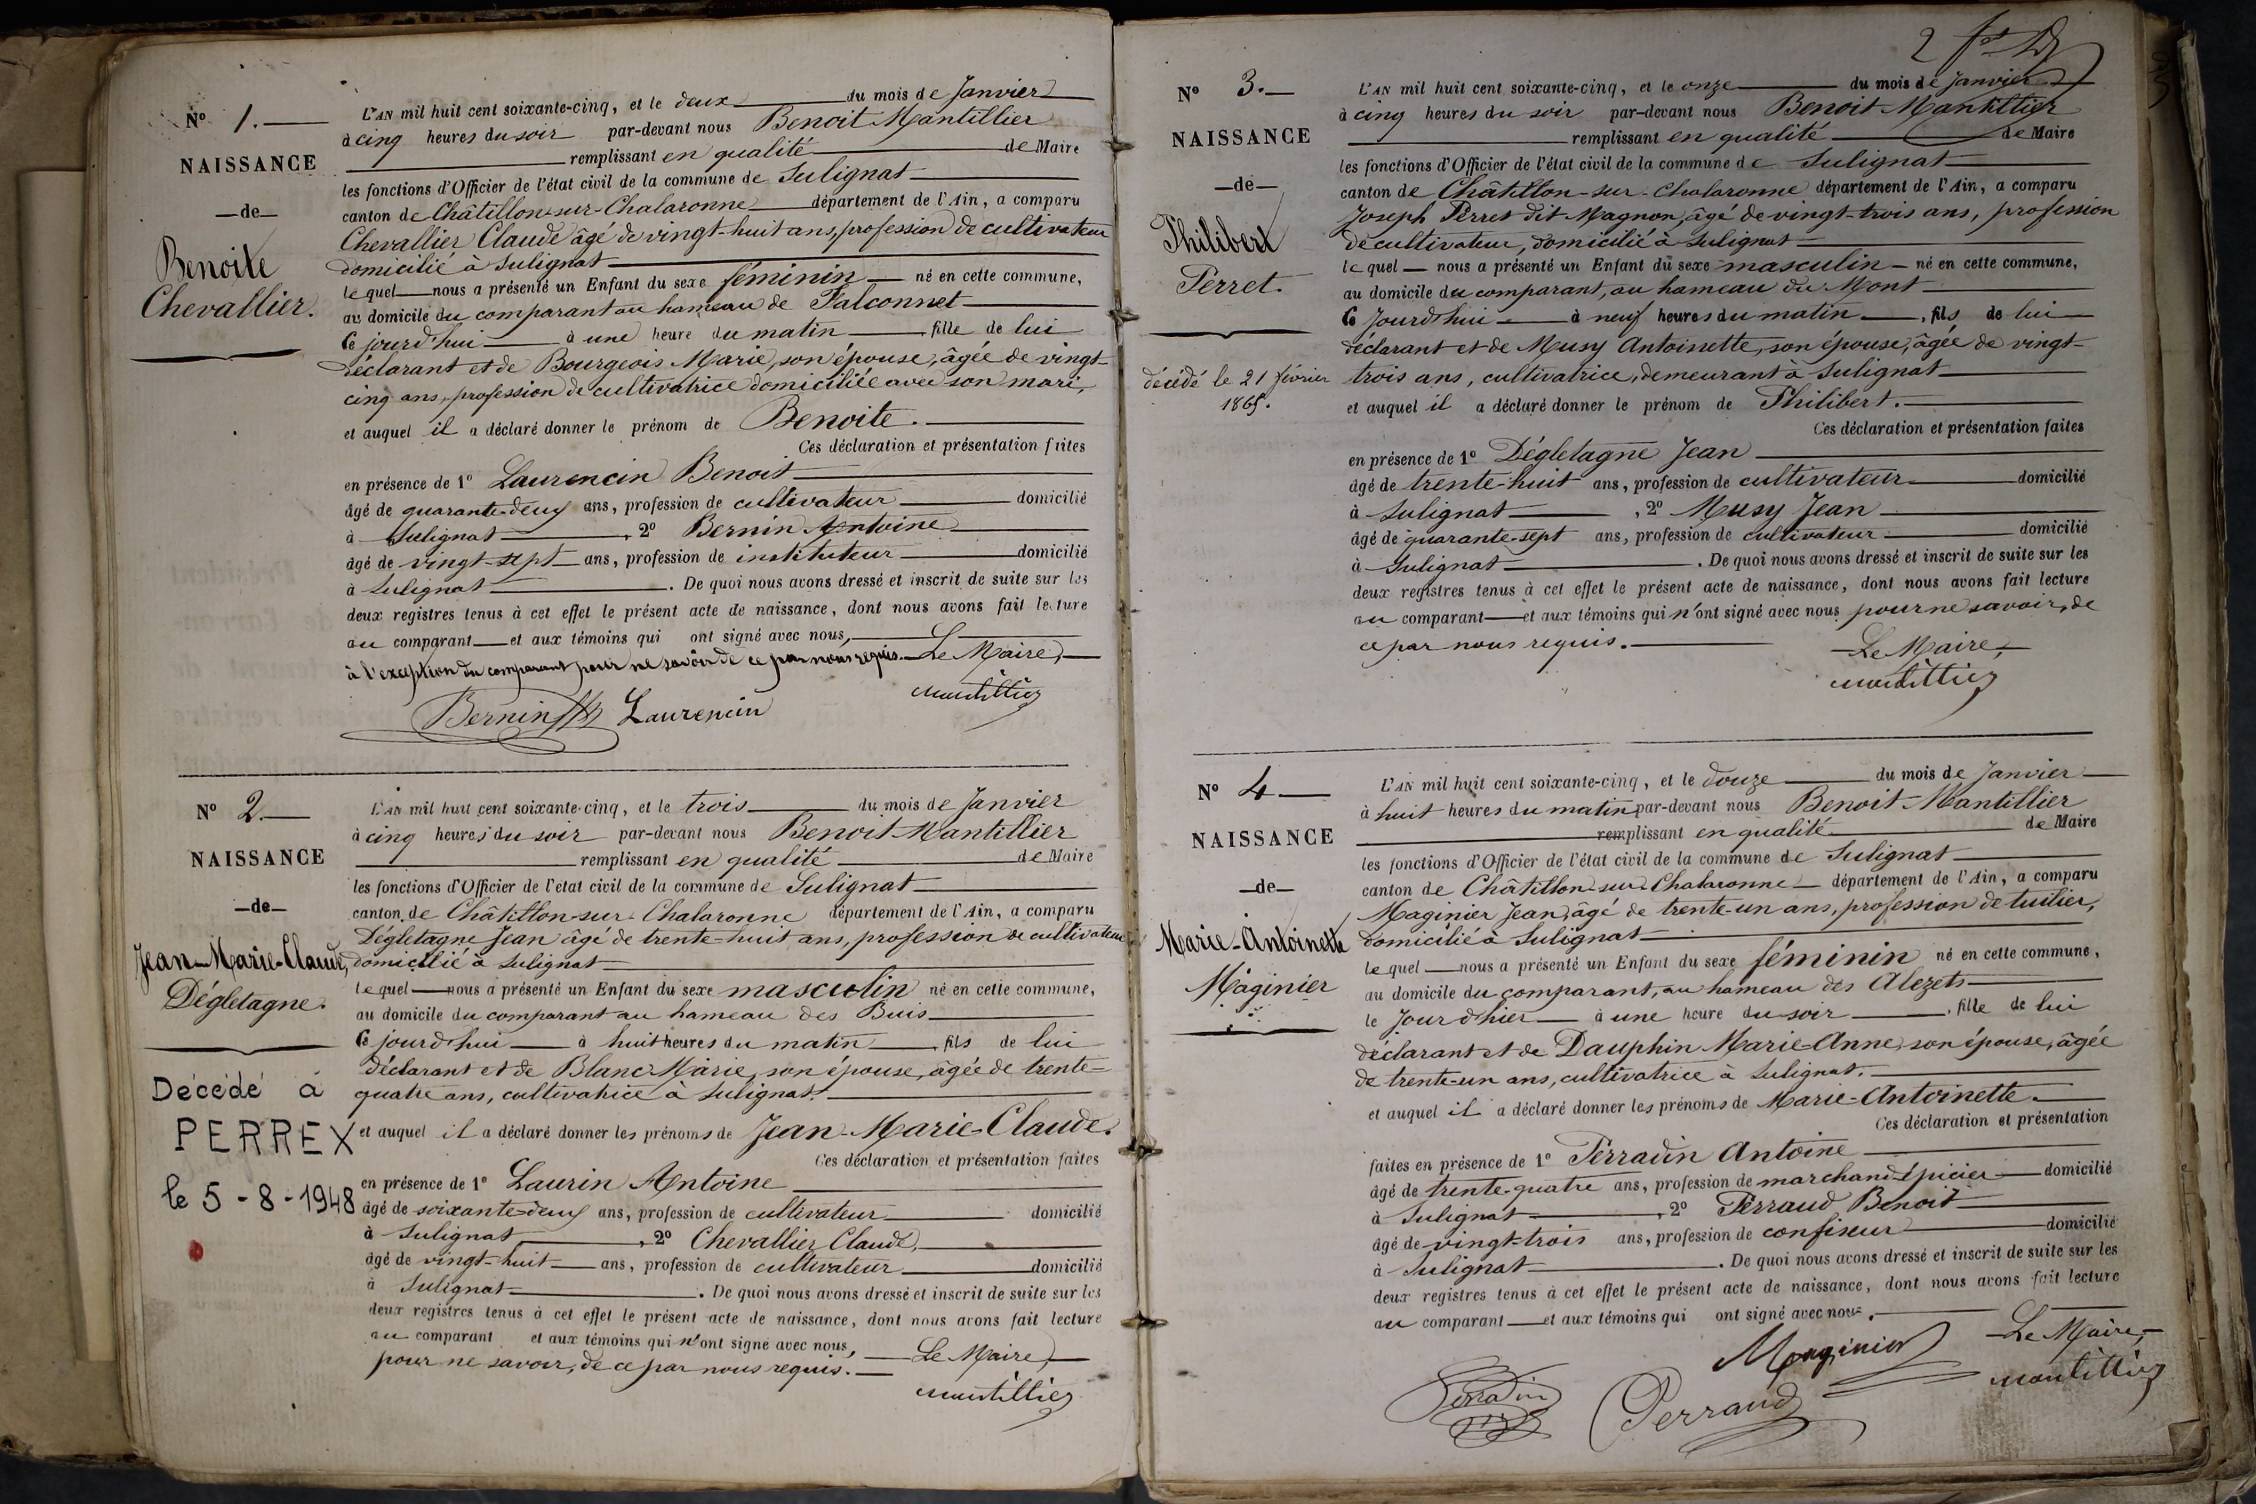 N° 1.
NAISSANCE
de
Benoite
Chevallier.
L'AN mil huit cent soixante-cinq, et le deux du mois de Janvier
à cinq heures du soir par-devant nous Benoit Mantillier
remplissant en qualité de Maire
les fonctions d'Officier de l'état civil de la commune de Sulignat
canton de Châtillon-sur-Chalaronne département de l'Ain, a comparu
Chevallier Claude âgé de vingt-huit ans, profession de cultivateur
domicilié à Sulignat
lequel nous a présenté un Enfant du sexe féminin né en cette commune,
au domicile du comparant au hameau de Falconnet
Ce jourd'hui à une heure du matin fille de lui
déclarant et de Bourgeois Marie, son épouse, âgée de vingt-
cinq ans, profession de cultivatrice domiciliée avec son mari,
et auquel il a déclaré donner le prénom de Benoite.
Ces déclaration et présentation faites
en présence de 1° Laurencin Benoit
âgé de quarante-deux ans, profession de cultivateur domicilié
à Sulignat, 2° Bernin Antoine
âgé de vingt-sept ans, profession de instituteur domicilié
à Sulignat. De quoi nous avons dressé et inscrit de suite sur les
deux registres tenus à cet effet le présent acte de naissance, dont nous avons fait lecture
au comparant et aux témoins qui ont signé avec nous,
à l'exception du comparant pour ne savoir de ce par nous requis. Le Maire,
Mantillier
Bernin Laurencin
N° 2.
NAISSANCE
de
Jean-Marie-Claude,
Dégletagne.
Décédé à
PERREX
le 5-8-1948
L'AN mil huit cent soixante-cinq, et le trois du mois de Janvier
à cinq heures du soir par-devant nous Benoit Mantillier
remplissant en qualité de Maire
les fonctions d'Officier de l'état civil de la commune de Sulignat
canton de Châtillon-sur-Chalaronne département de l'Ain, a comparu
Dégletagne Jean âgé de trente-huit ans, profession de cultivateur
domicilié à Sulignat
lequel nous a présenté un Enfant du sexe masculin né en cette commune,
au domicile du comparant au hameau des Buis
Ce jourd'hui à huit heures du matin, fils de lui
déclarant et de Blanc Marie, son épouse, âgée de trente-
quatre ans, cultivatrice à Sulignat.
et auquel il a déclaré donner les prénoms de Jean-Marie-Claude.
Ces déclaration et présentation faites
en présence de 1° Laurin Antoine
âgé de soixante-deux ans, profession de cultivateur domicilié
à Sulignat, 2° Chevallier Claude,
âgé de vingt-huit ans, profession de cultivateur domicilié
à Sulignat. De quoi nous avons dressé et inscrit de suite sur les
deux registres tenus à cet effet le présent acte de naissance, dont nous avons fait lecture
au comparant et aux témoins qui n'ont signé avec nous,
pour ne savoir, de ce par nous requis. Le Maire,
Mantillier
2
N° 3.
NAISSANCE
de
Philibert
Perret.
décédé le 21 février
1865.
L'AN mil huit cent soixante-cinq, et le onze du mois de Janvier
à cinq heures du soir par-devant nous Benoit Mantillier
remplissant en qualité de Maire
les fonctions d'Officier de l'état civil de la commune de Sulignat
canton de Châtillon-sur-Chalaronne département de l'Ain, a comparu
Joseph Perret dit Magnon, âgé de vingt-trois ans, profession
de cultivateur, domicilié à Sulignat
lequel nous a présenté un Enfant du sexe masculin né en cette commune,
au domicile du comparant, au hameau du Mont
Ce Jourd'hui à neuf heures du matin, fils de lui
déclarant et de Musy Antoinette, son épouse, âgée de vingt-
trois ans, cultivatrice, demeurant à Sulignat
et auquel il a déclaré donner le prénom de Philibert.
Ces déclaration et présentation faites
en présence de 1° Dégletagne Jean
âgé de trente-huit ans, profession de cultivateur domicilié
à Sulignat, 2° Musy Jean
âgé de quarante-sept ans, profession de cultivateur domicilié
à Sulignat. De quoi nous avons dressé et inscrit de suite sur les
deux registres tenus à cet effet le présent acte de naissance, dont nous avons fait lecture
au comparant et aux témoins qui n'ont signé avec nous pour ne savoir, de
ce par nous requis.
Le Maire,
Mantillier
N° 4
NAISSANCE
de
Marie-Antoinette
Maginier
L'AN mil huit cent soixante-cinq, et le douze du mois de Janvier
à huit heures du matin, par-devant nous Benoit Mantillier
remplissant en qualité de Maire
les fonctions d'Officier de l'état civil de la commune de Sulignat
canton de Châtillon-sur-Chalaronne département de l'Ain, a comparu
Maginier Jean, âgé de trente-un ans, profession de tuilier,
domicilié à Sulignat
lequel nous a présenté un Enfant du sexe féminin né en cette commune,
au domicile du comparant, au hameau des Alezets
le Jour d'hier à une heure du soir, fille de lui
déclarant et de Dauphin Marie-Anne, son épouse, âgée
de trente-un ans, cultivatrice à Sulignat.
et auquel il a déclaré donner les prénoms de Marie-Antoinette.
Ces déclaration et présentation
faites en présence de 1° Perradin Antoine
âgé de trente-quatre ans, profession de marchand Epicier domicilié
à Sulignat, 2° Perraud Benoit
âgé de vingt-trois ans, profession de confiseur domicilié
à Sulignat. De quoi nous avons dressé et inscrit de suite sur les
deux registres tenus à cet effet le présent acte de naissance, dont nous avons fait lecture
au comparant et aux témoins qui ont signé avec nous.
Maginier Le Maire,
Perradin Perraud Mantillier